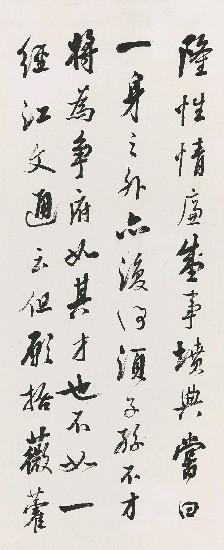 隆性情廉事墳典嘗曰
一身之外亦復何須子孫不才
將為爭府如其才也不如一
經江文通云但願拾薇藿